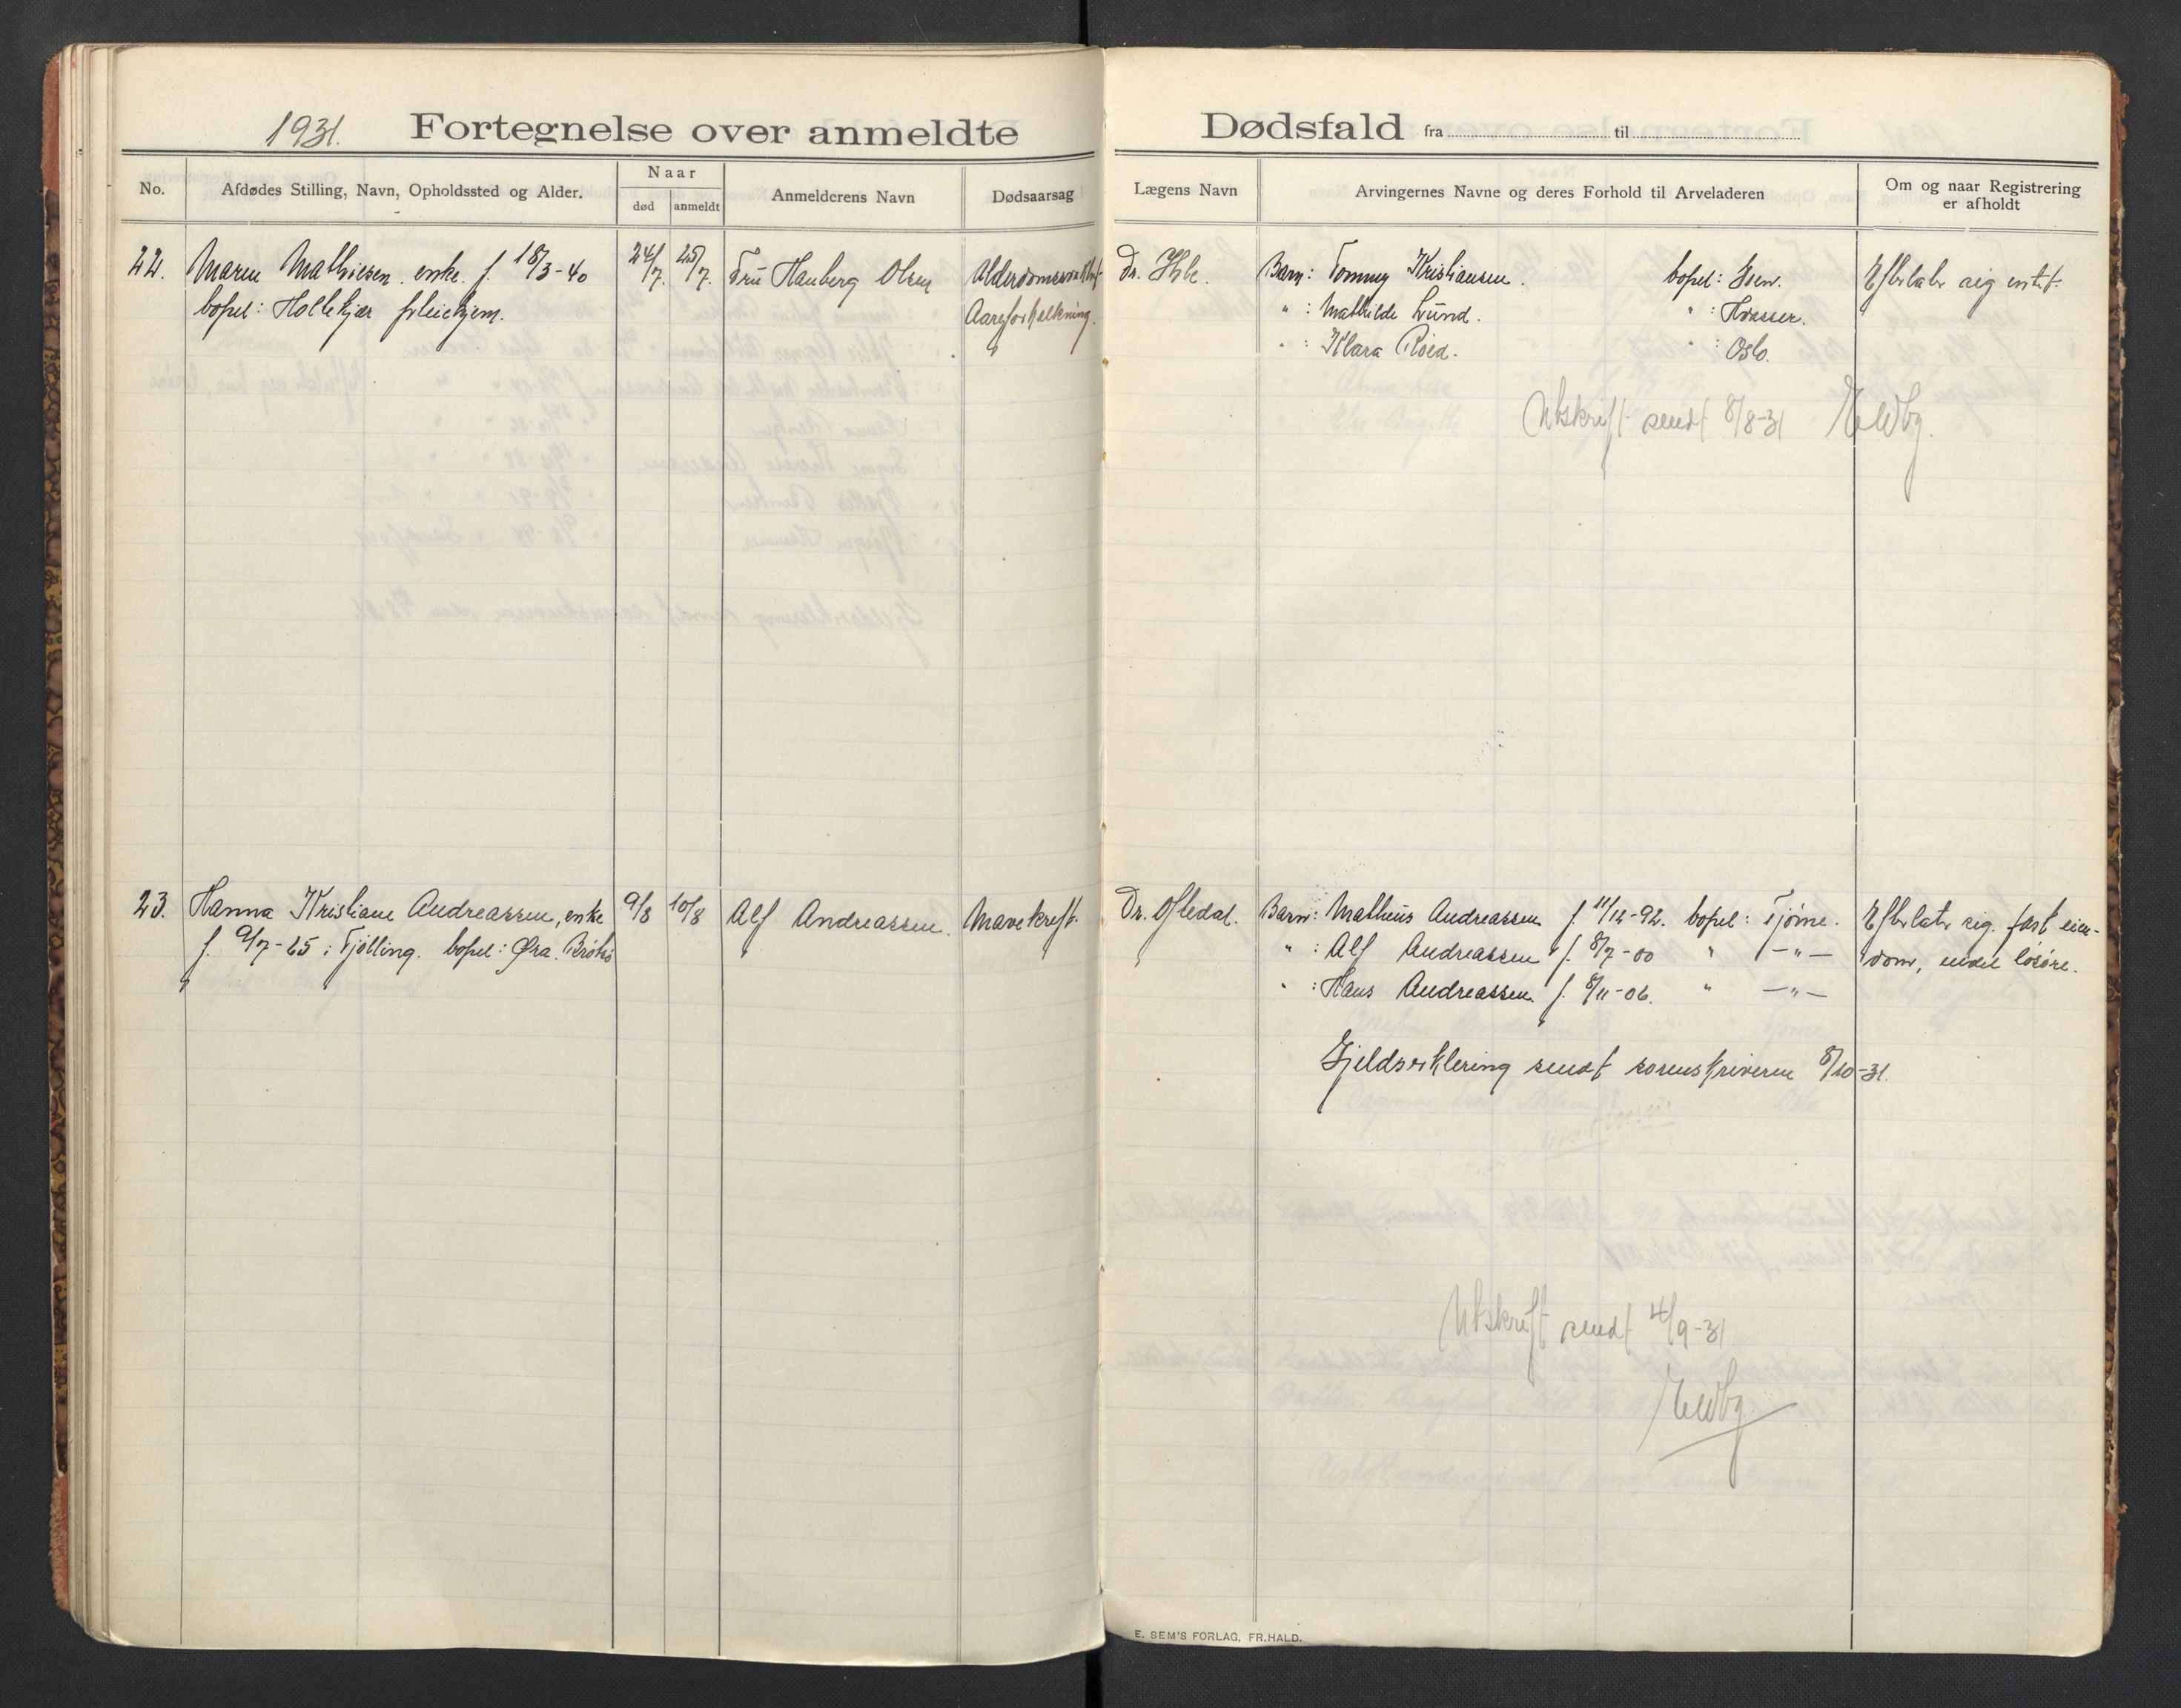 1931. Fortegnelse over anmeldte Dødsfald fra til
No. Afdødes Stilling, Navn, Opholdssted og Alder. Naar Anmelderens Navn Dødsaarsag Lægens Navn Arvingernes Navne og deres Forhold til Arveladeren Om og naar Registrering
død anmeldt er afholdt
22. Maren Mathiesen. enke. f. 18/3-40 24/7. 25/7. Fru Hanberg Olsen Dr. Barn: Tommy Kristiansen. bopel: Efterlater sig intet.
bopel: Hollekjær pleiehjem. Aareforkalkning. " : Mathilde Lund. " : Hvasser.
" : Klara Röed. " : Oslo.
Utskrift sendt 8/8-31
23. Hanna Kristiane Andreassen, enke 9/8 10/8 Alf Andreassen. Mavekreft. Dr. Oftedal. Barn: Mathius Andreassen f 11/12-92. bopel: Tjöme. Efterlater sig. fast eien-
f. 9/7-65 i Tjölling. bopel: Øra. Brötsö " : Alf Andreassen f. 8/7-00 " —"— dom, endel lösöre.
" : Hans Andreassen. f. 8/11-06. " —"—
Gjeldserklering sendt sorenskriveren 8/10-31.
Utskrift sendt 4/9-31
E. SEM'S FORLAG, FR.HALD.